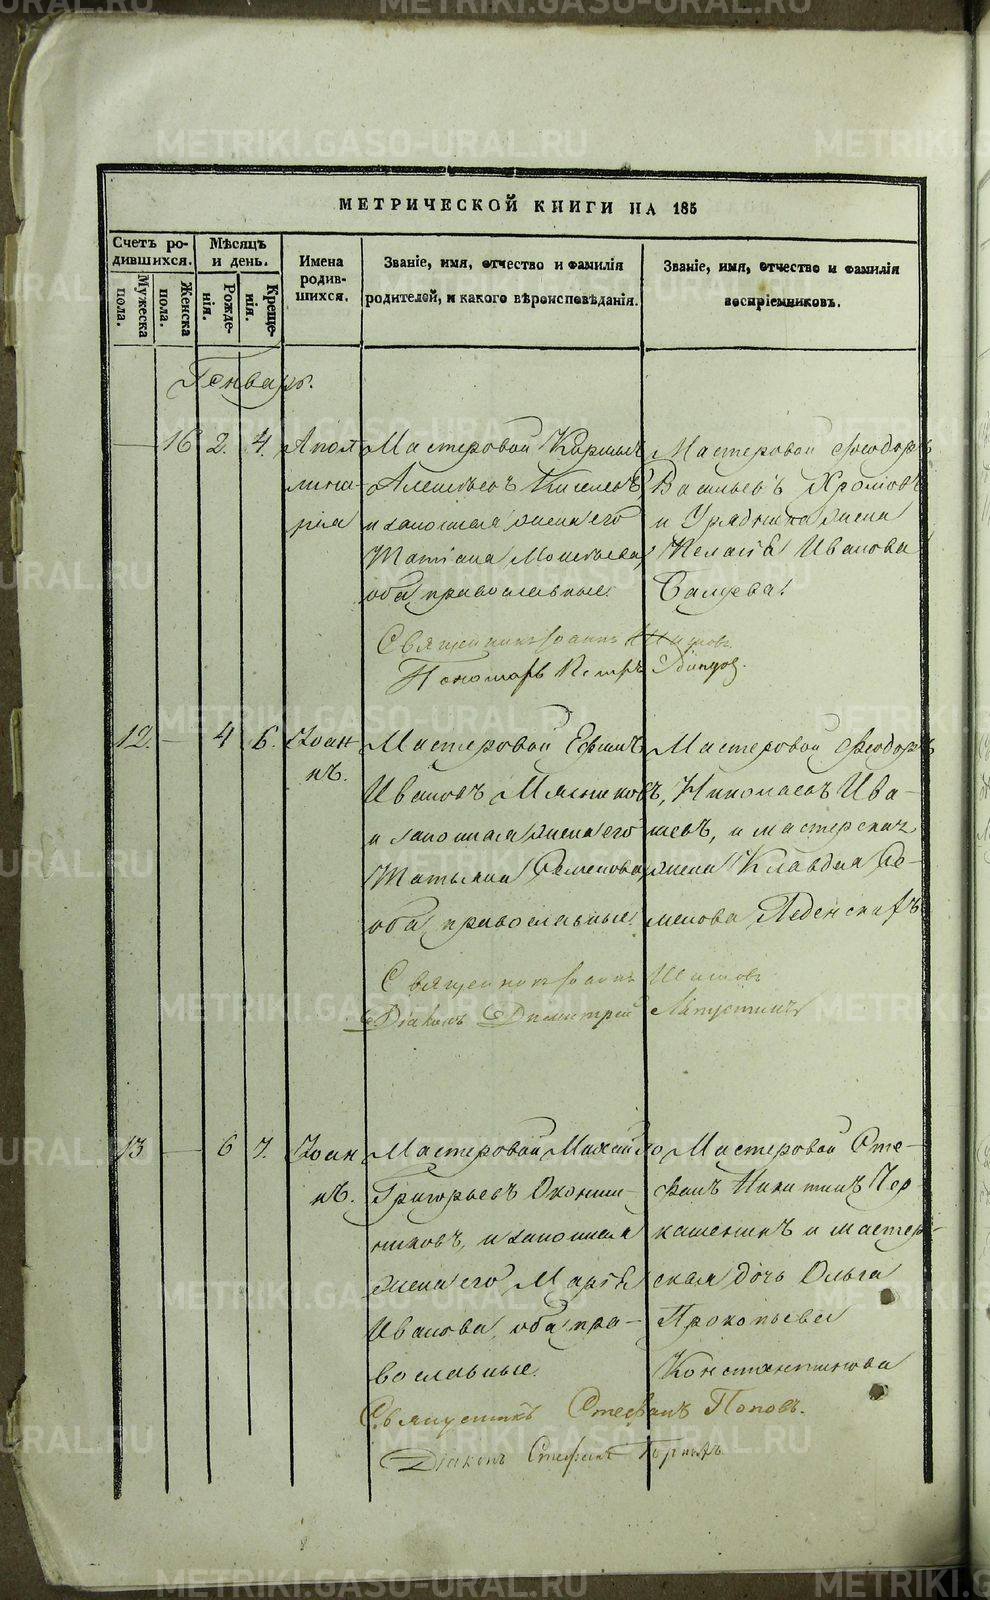 METRIKI.GASO-URAL.RU
МЕТРИЧЕСКОЙ КНИГИ НА 185
Счетъ родившихся.
Мужеска пола.
Женска пола.
Мѣсяцъ и день.
Рожденія.
Крещенія.
Имена родившихся.
Званіе, имя, отчество и фамилія родителей, и какого вѣроисповѣданія.
Званіе, имя, отчество и фамилія воспріемниковъ.
Генварь.
16 2. 4. Апол
лина-
рія
Мастеровой
Алексѣевъ Киселевъ
и законная жена его
Татіана Моисѣева,
оба православные.
Мастеровой Ѳеодоръ
Васильевъ Хромовъ
и Урядника жена
Иванова
Священникъ Іоаннъ
Пономарь Петръ
12. 4 6. Іоан
нъ.
Мастеровой Ефимъ
Ивановъ Мясниковъ,
и законная жена его
Татьяна Семенова,
оба православные.
Мастеровой Ѳеодоръ
Николаевъ Ива-
шевъ, и мастерскаго
жена Клавдія Се-
менова
Священникъ Іоаннъ
Діаконъ Димитрій Лапустинъ
13 6 7. Іоан
нъ.
Мастеровой Михайло
Григорьевъ Оконни-
шниковъ, и законная
жена его Марѳа
Иванова, оба пра-
вославные.
Мастеровой Сте-
фанъ Никитинъ Чер-
кашенинъ и мастер-
ская дочь Ольга
Прокопьева
Константинова
Священникъ Стефанъ Поповъ.
Діаконъ Стефанъ Горныхъ